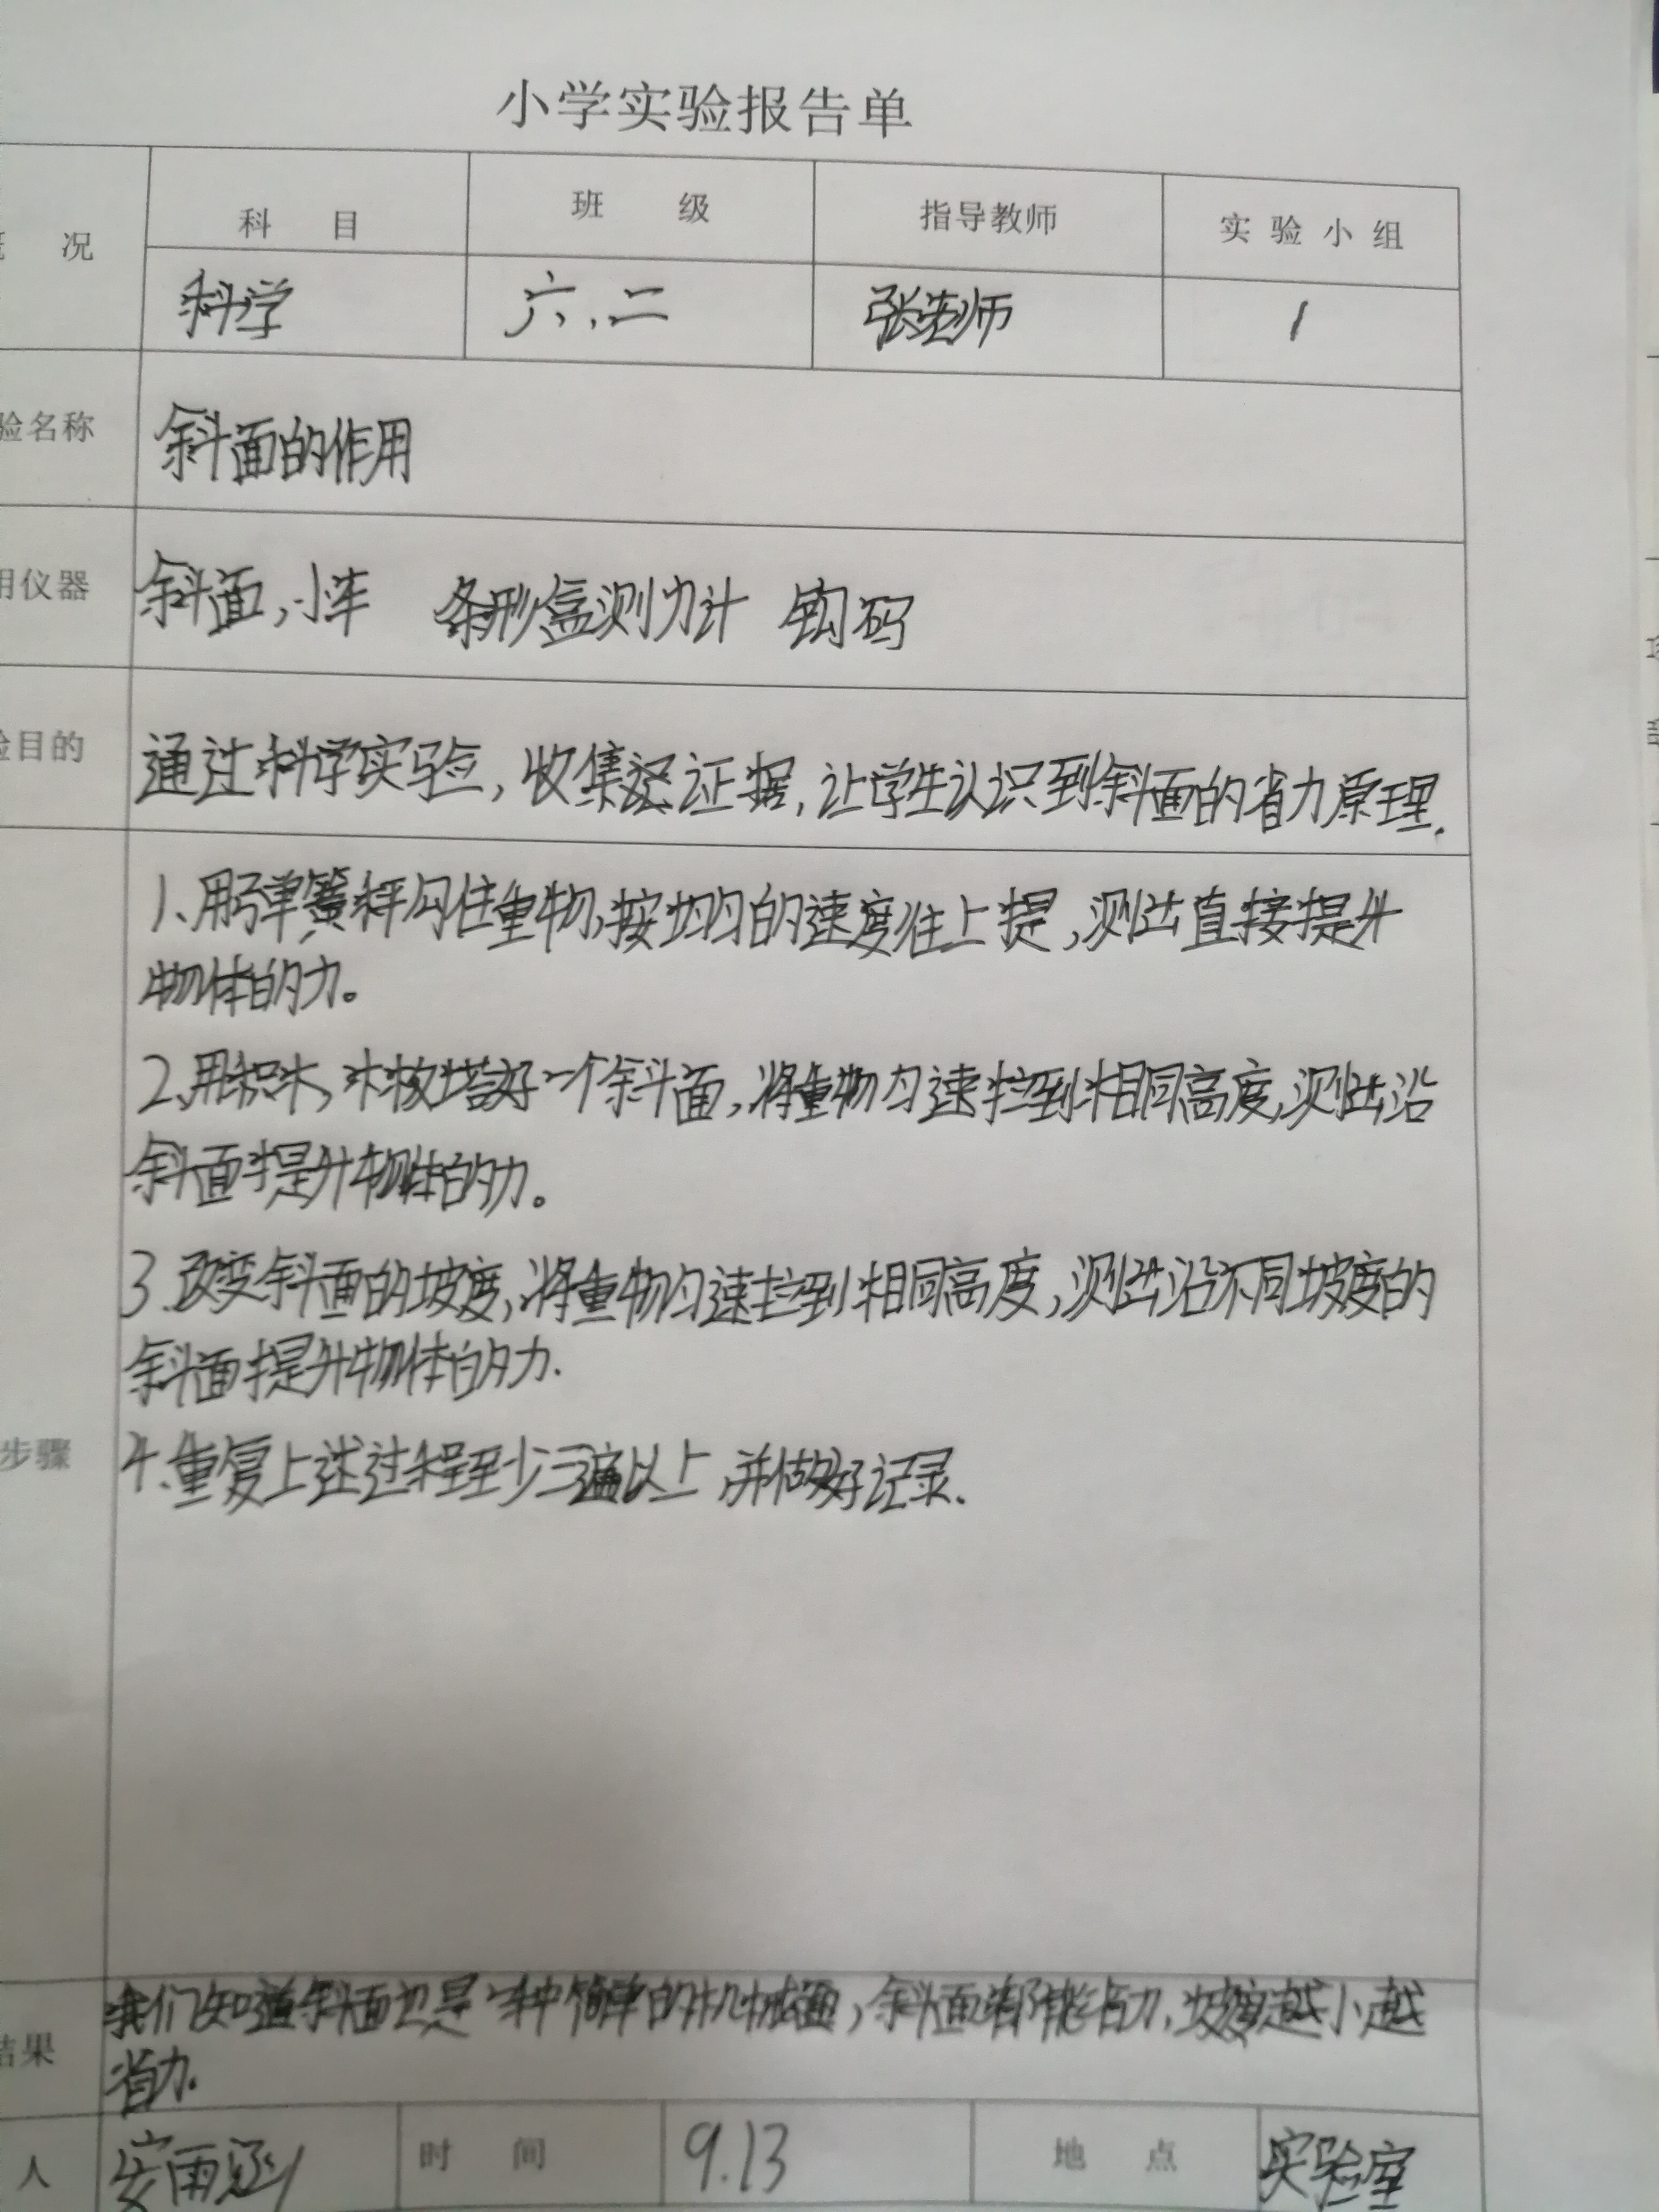 小学实验报告单
况 科目 班级 指导教师 实验小组
科学 六.二 张老师 1
验名称 斜面的作用
用仪器 斜面,小车 条形盒测力计 钩码
目的 通过科学实验,收集证据,让学生认识到斜面的省力原理.
1、用弹簧秤勾住重物,按均匀的速度往上提,测出直接提升
物体的力。
2、用积木,木板搭好一个斜面,将重物匀速拉到相同高度,测出沿
斜面提升物体的力。
3.改变斜面的坡度,将重物匀速拉到相同高度,测出沿不同坡度的
斜面提升物体的力.
步骤 4.重复上述过程至少三遍以上,并做好记录.
我们知道斜面也是一种简单的机械,斜面都能省力,坡度越小越
结果 省力.
人 安雨涵 时间 9.13 地点 实验室